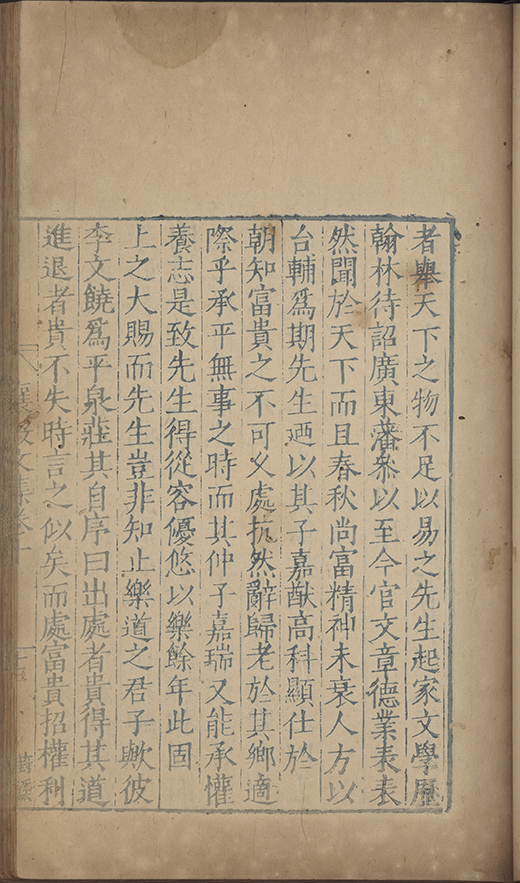 者舉天下之物不足以易之先生起家文學歷
翰林待詔廣東藩叅以至今官文章德業表表
然聞於天下而且春秋尚富精神未衰人方以
台輔爲期先生廼以其子嘉猷高科顯仕於
朝知富貴之不可乆處抗然辭歸老於其鄉適
際乎承平無事之時而其仲子嘉瑞又能承懽
養志是致先生得從容優悠以樂餘年此固
上之大賜而先生豈非知止樂道之君子歟彼
李文饒爲平泉莊其自序曰出處者貴得其道
進退者貴不失時言之似矣而處富貴招權利
文集卷十